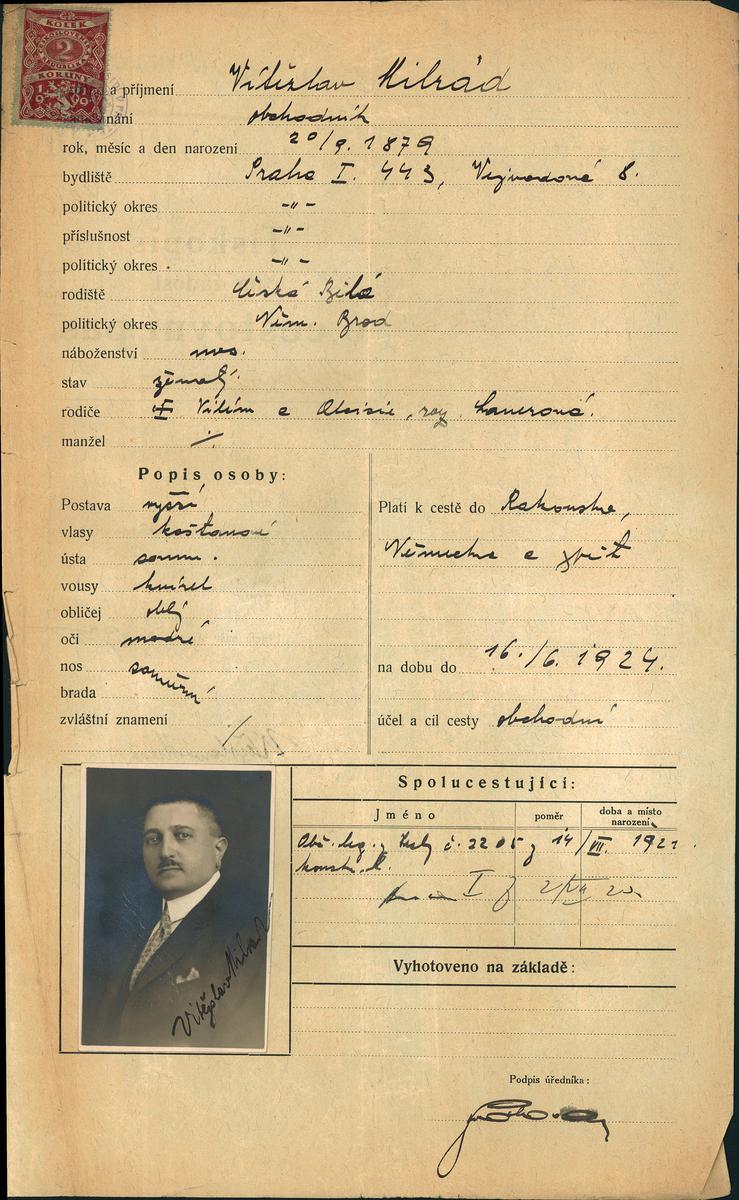 KOLEK
ČESKOSLOVENSKÁ
REPUBLIKA
2
KORUNY
1919
a příjmení Vítězslav Milrád
obchodník
rok, měsíc a den narození 20/9. 1879
bydliště Praha I. 443, Vejvodova 8.
politický okres -"-
příslušnost -"-
politický okres -"-
rodiště Česká Bělá
politický okres Něm. Brod
náboženství mos.
stav ženatý
rodiče Vilém a roz. Lauerová.
manžel
Popis osoby:
Postava vyšší
vlasy kaštanové
ústa soum.
vousy knírek
obličej oblý
oči modré
nos souměrný
brada
zvláštní znamení /
Platí k cestě do Rakouska,
Německa a zpět
na dobu do 16./6. 1924.
účel a cíl cesty obchodní
Spolucestující:
Jméno poměr doba a místo narození
Obč. leg. z č. 2205 z 14/VII. 1921.
I
Vítězslav Milrád
Vyhotoveno na základě:
Podpis úředníka: